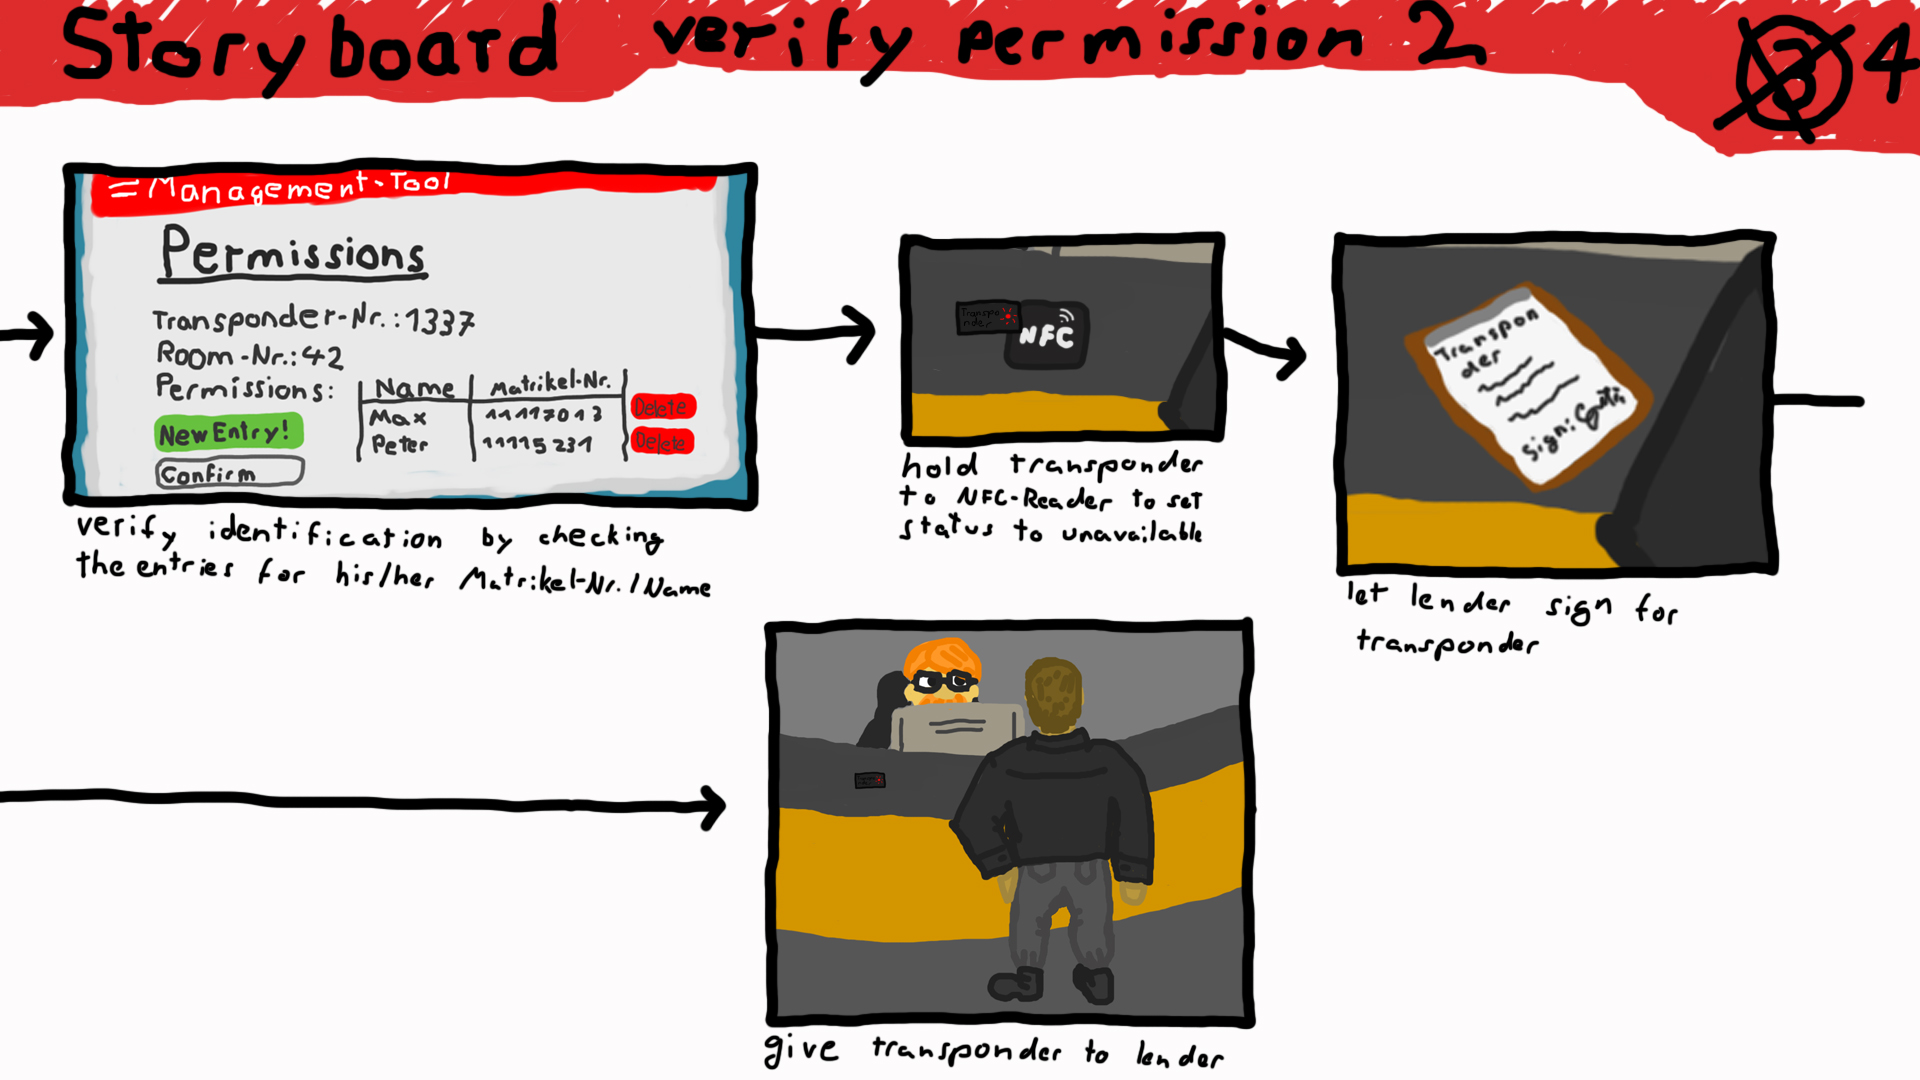 Storyboard verify permission 2
4
=Management-Tool
Permissions
Transponder-Nr.:1337
Room-Nr.:42
Permissions:
Name Matrikel-Nr.
Max 11117013 Delete
Peter 11115231 Delete
New Entry!
Confirm
verify identification by checking
the entries for his/her Matrikel-Nr./Name
Transpon
nder
NFC
hold transponder
to NFC-Reader to set
status to unavailable
Transpon
der
Sign:
let lender sign for
transponder
give transponder to lender